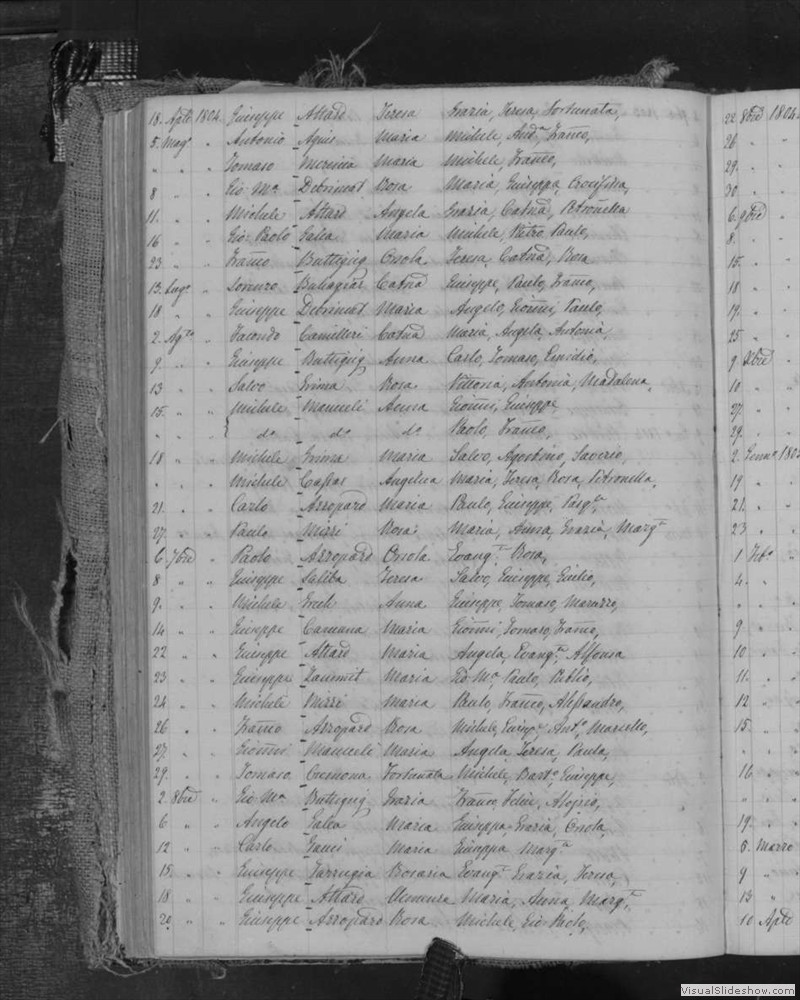 18. Aple 1804. Giuseppe Attard Teresa Grazia, Teresa, Fortunata,
5. Maggo " Antonio Agius Maria Michele, And.a, Franco,
" " Tomaso Maria Michele, Franco,
8 " " Gio: Ma Debrincat Rosa Maria, Giuseppa, Crocifissa,
11. " " Michele Attard Angela Grazia, Catna, Petronella
16 " " Gio: Paolo Galea Maria Michele, Pietro Paulo,
23 " " Franco Buttigieg Orsola Teresa, Catna, Rosa
13. Lugo " Lorenzo Buhagiar Catna Giuseppe, Paulo, Franco,
18 " " Giuseppe Debrincat Maria Angelo, Gioñni, Paulo,
2. Agto " Facondo Camilleri Catna Maria, Angela, Antonia,
9. " " Giuseppe Buttigieg Anna Carlo, Tomaso, Emidio,
13 " " Salvo Grima Rosa Vittoria, Antonia, Madalena,
15. " " Michele Manueli Anna Gioñni, Giuseppe,
" " " do do do Paolo, Franco,
18 " " Michele Grima Maria Salvo, Agostino, Saverio,
" " " Michele Cassar Angelica Maria, Teresa, Rosa, Petronella,
21. " " Carlo Azzopard Maria Paulo, Giuseppe, Pasqle
27. " " Paulo Mizzi Rosa Maria, Anna, Grazia, Margta
6. 7bre " Paolo Azzopard Orsola Evangta Rosa,
8 " " Giuseppe Saliba Teresa Salvo, Giuseppe, Giulio,
9. " " Michele Grech Anna Giuseppe, Tomaso,
14 " " Giuseppe Caruana Maria Gioñni, Tomaso, Franco,
22 " " Giuseppe Attard Maria Angela, Evangta, Alfonsa
23 " " Giuseppe Zammit Maria Gio: Ma Paulo, Publio,
24 " " Michele Mizzi Maria Paulo, Franco, Alessandro,
26 " " Franco Azzopard Rosa Michele, Giuspe, Anto, Marcello,
27. " " Gioñni Manueli Maria Angela, Teresa, Paula,
29. " " Tomaso Cremona Fortunata Michele, Barto, Giuseppe,
2. 8bre " Gio: Ma Buttigieg Grazia Franco, Felice, Aloysio,
6 " " Angelo Galea Maria Giuseppa Grazia, Orsola,
12 " " Carlo Gauci Maria Giuseppa Margta
15. " " Giuseppe Farrugia Rosaria Evangta Grazia, Teresa,
18 " " Giuseppe Attard Clemenza Maria, Anna, Margta,
20 " " Giuseppe Azzopard Rosa Michele, Gio: Paolo,
22 8bre 1804.
26. " "
29. " "
30. " "
6. 9bre
8. " "
15. " "
18 " "
19. " "
25. " "
9 Xbre
10 " "
27. " "
29. " "
2. Genno 180
19 " "
21. " "
23 " "
1 Febo
4. " "
" " "
9 " "
10 " "
11. " "
12 " "
15. " "
" " "
16 " "
" " "
19. " "
5. Marzo
9 " "
13 " "
10 Aple
VisualSlideshow.com